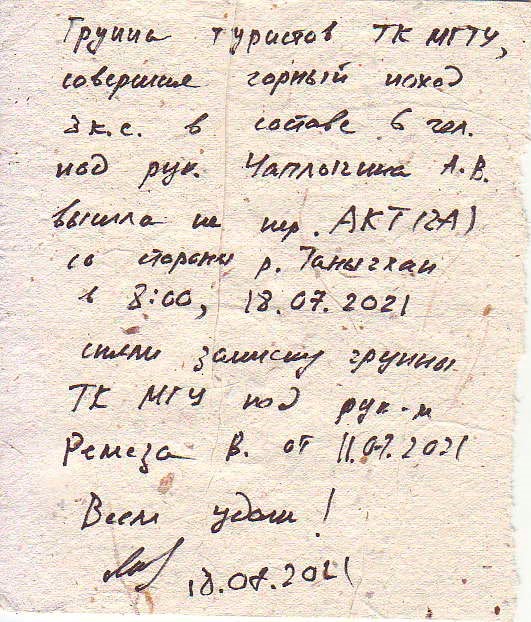 Группа туристов ТК МГТУ,
совершая горный поход
3 к.с. в составе 6 чел.
под рук. Чаплыгина А.В.
вышла на пер. АКТ (2А)
со стороны р. Танычхан
в 8:00, 18.07.2021
сняли записку группы
ТК МГУ под рук-м
Ремеза В. от 11.07.2021
Всем удачи!
18.07.2021